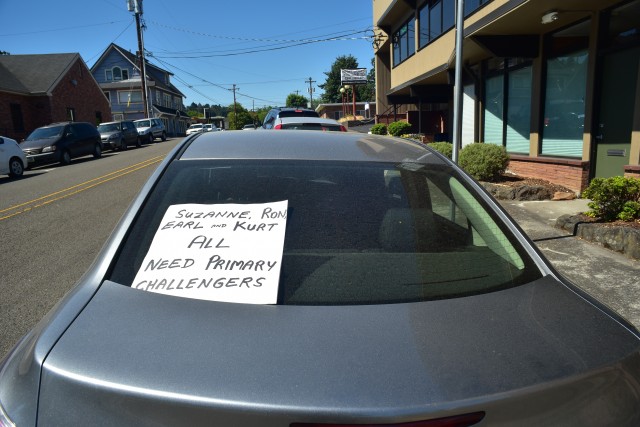 SUZANNE, RON,
EARL AND KURT
ALL
NEED PRIMARY
CHALLENGERS